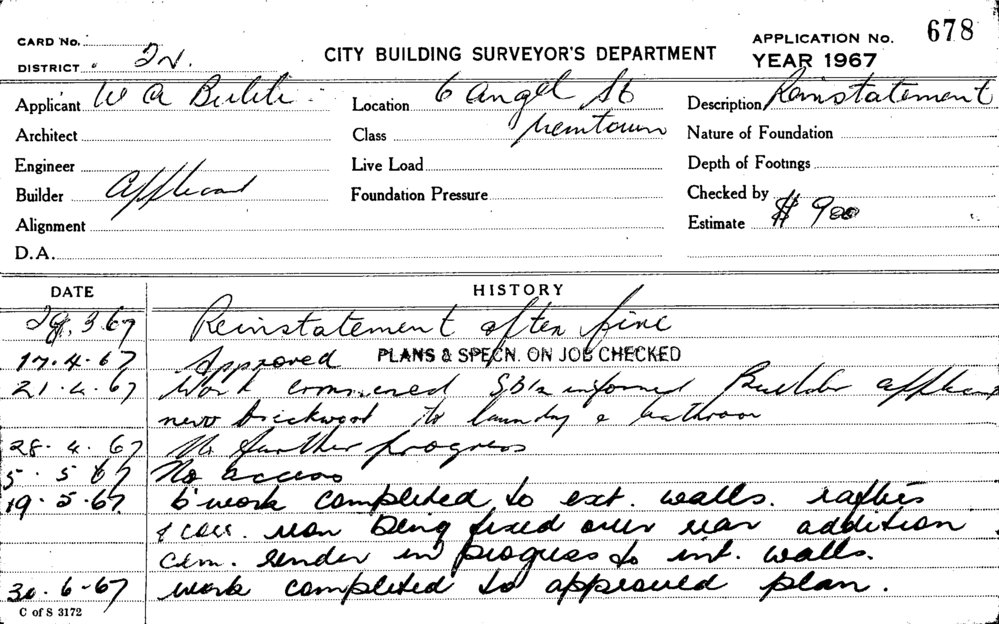 CARD No.
DISTRICT 2N.
CITY BUILDING SURVEYOR'S DEPARTMENT
APPLICATION No. 678
YEAR 1967
Applicant W A
Location 6 Angel St
Description Reinstatement
Architect
Class Newtown
Nature of Foundation
Engineer
Live Load
Depth of Footings
Builder Applicant
Foundation Pressure
Checked by
Alignment
Estimate $ 900
D.A.
DATE
HISTORY
3.67 Reinstatement after fire
17.4.67 Approved PLANS & SPECN. ON JOB CHECKED
21.4.67 Work commenced informed Builder
new brickwork to laundry & bathroom
28.4.67 No further progress
5.5.67 No access
19.5.67 B'work completed to ext. walls. rafters
& corr. iron being fixed over rear addition
Cem. render in progress to int. walls.
30.6.67 work completed to approved plan.
C of S 3172